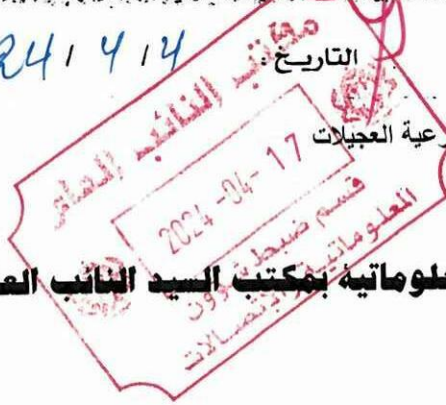 التاريخ: 24 / 4 / 4
رعية العجيلات
مكتب النائب العام
2024-04-17
قسم ضبط شؤون
المعلوماتية والاتصالات
لوماتية بمكتب السيد النائب الع